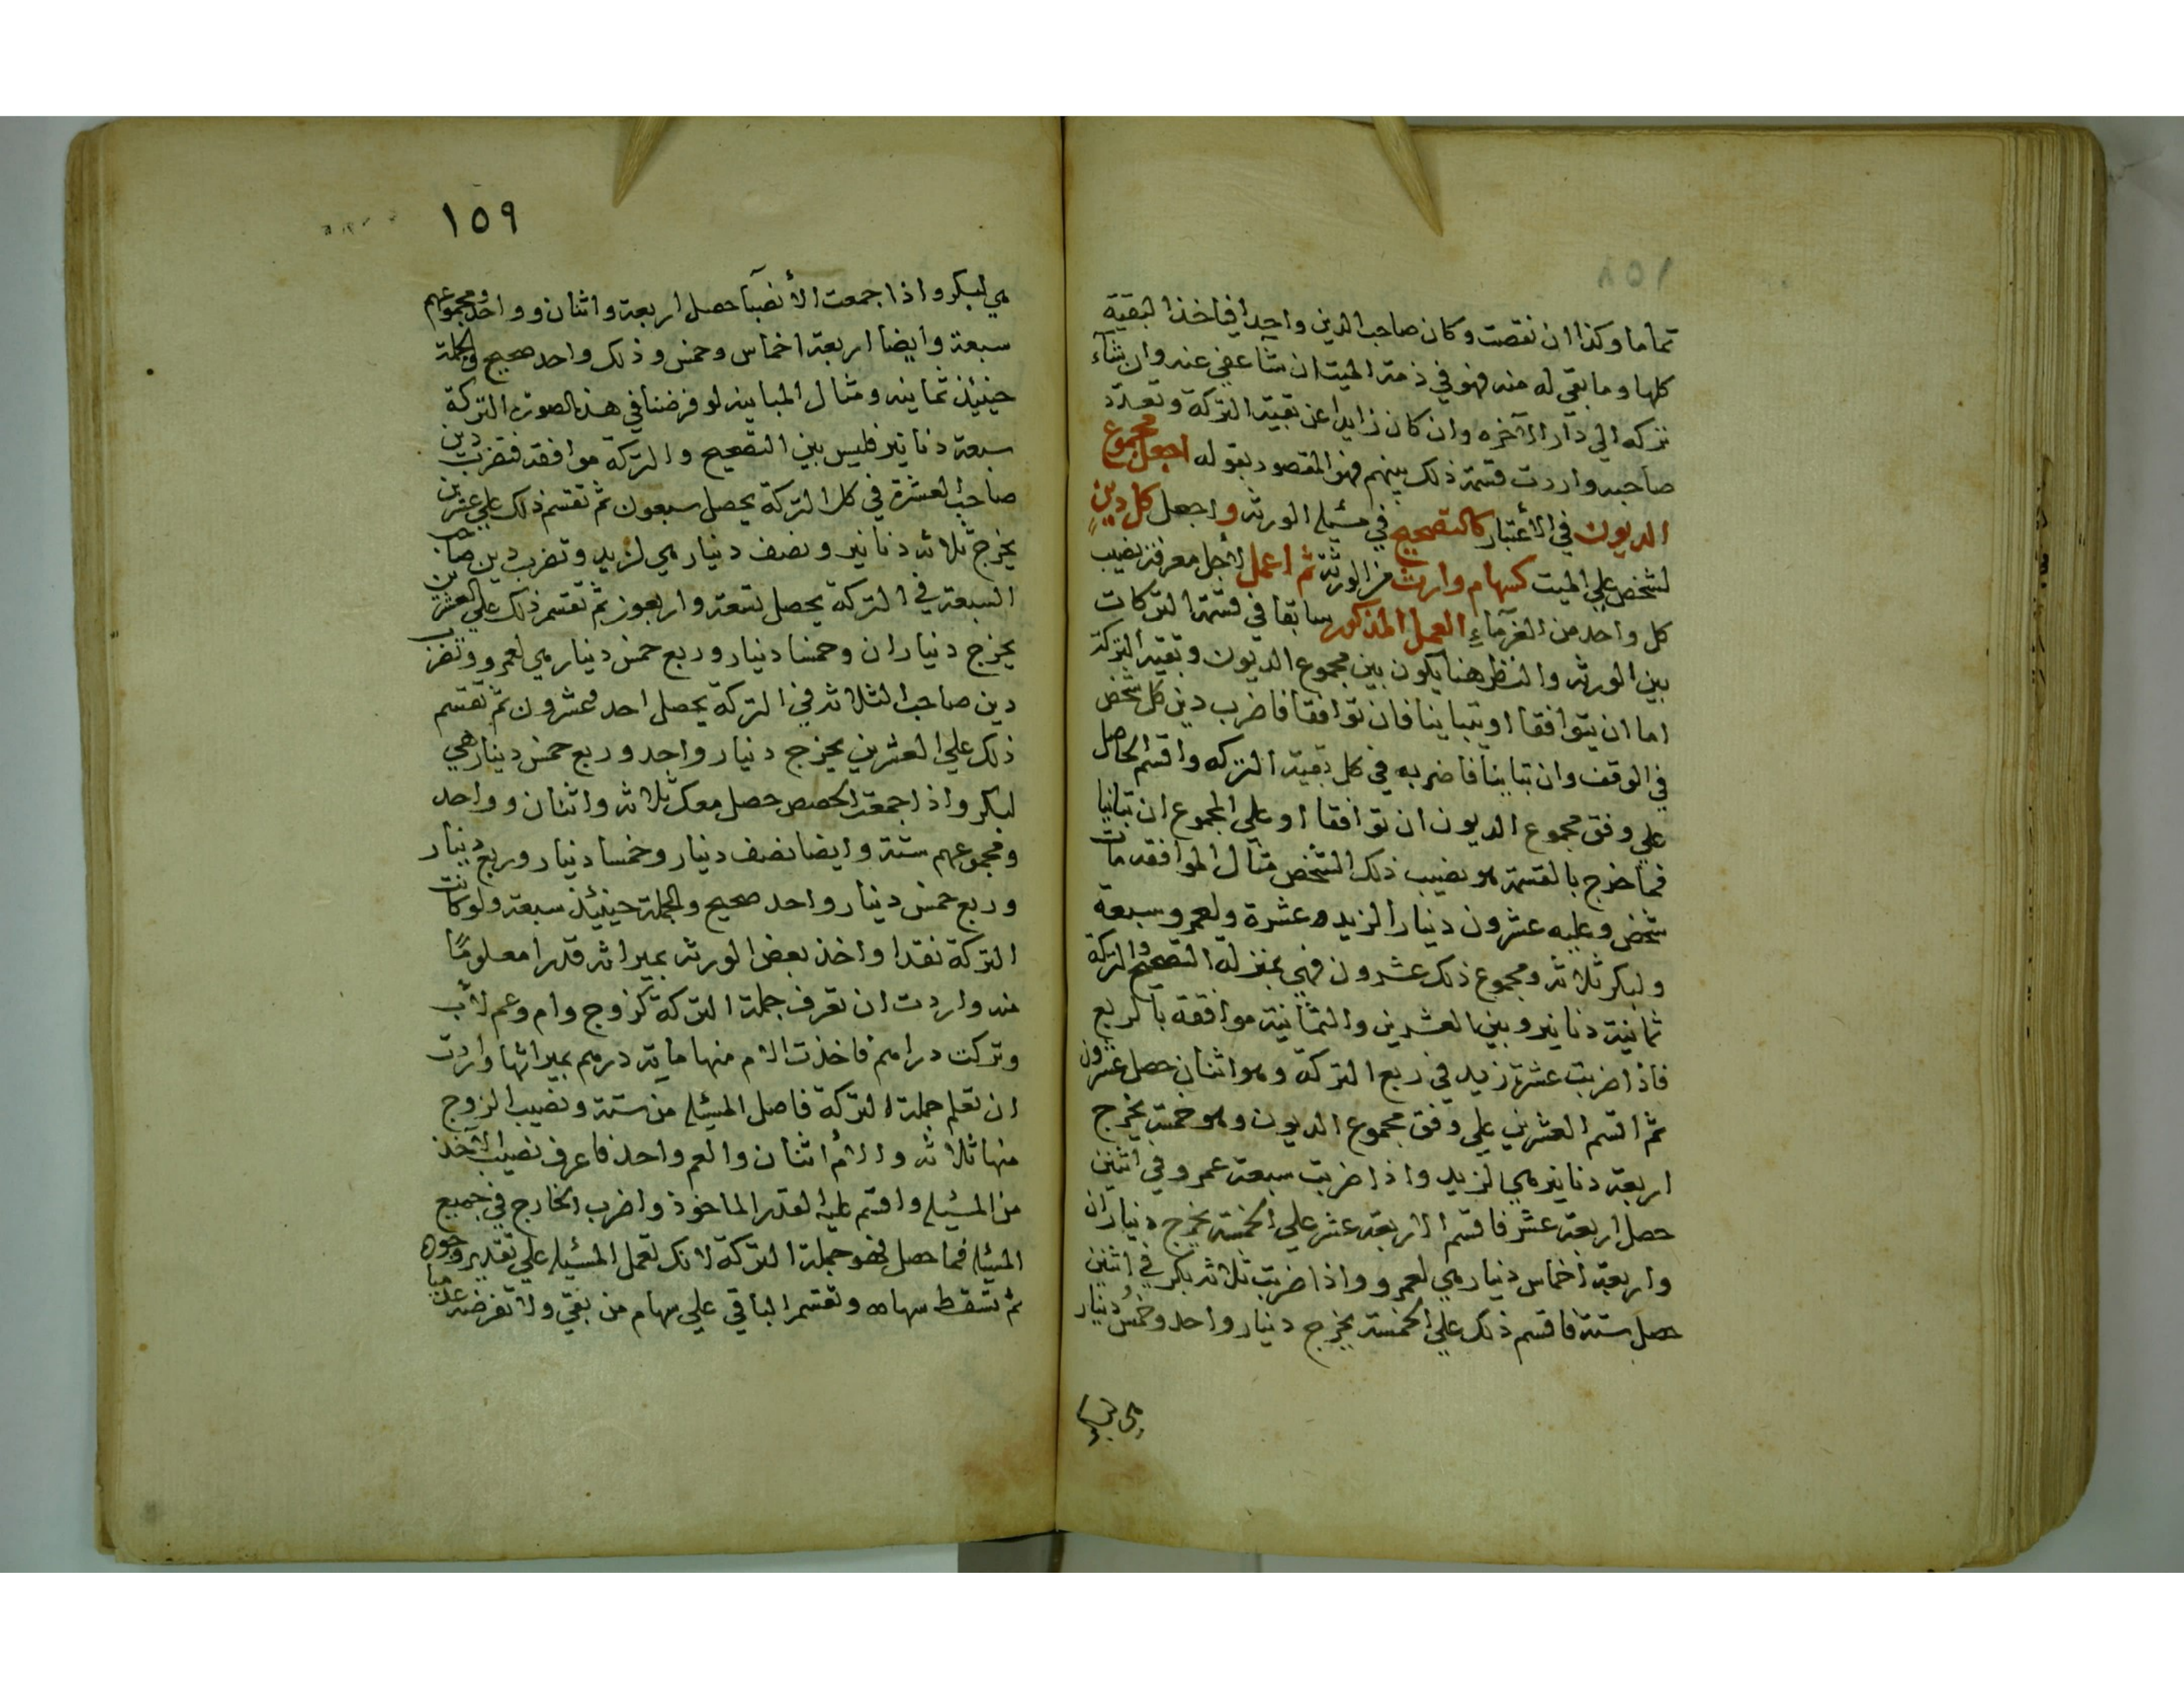 تماما وكذا ان نقصت وكان صاحب الدين واحدا فياخذ البقية
كلها وما بقي له منه فهو في ذمة الميت ان شآ عفي عنه وان شآء
تركه الي دآر الآخره وان كان زايدا عن بقية التركة وتعدد
صاحبه واردت قسمة ذلك بينهم فهو المقصود بقوله اجعل مجموع
الديون في الأعتبار كالتصحيح في مسئلة الورثه واجعل كل دين
لشخص علي الميت كسهام وارث من الورثة ثم اعمل لاجل معرفة نصيب
كل واحد من الغرمآء العمل المذكور سابقا في قسمة التركات
بين الورثه والنظر هنا يكون بين مجموع الديون وبقية التركة
اما ان يتوافقا او يتباينا فان توافقا فاضرب دين كل شخص
في الوفق وان تباينا فاضربه في كل بقية التركه واقسم الحاصل
علي وفق مجموع الديون ان توافقا او علي المجموع ان تباينا
فما خرج بالقسمة هو نصيب ذلك الشخص مثال الموافقه مات
شخص وعليه عشرون دينارا لزيد عشرة ولعمرو سبعة
ولبكر ثلاثه ومجموع ذلك عشرون فهي بمنزلة التصحيح والتركة
ثمانية دنانير وبين العشرين والثمانية موافقة بالربع
فاذا ضربت عشرة زيد في ربع التركة وهو اثنان حصل عشرون
ثم اقسم العشرين علي وفق مجموع الديون وهو خمسة يخرج
اربعة دنانير هي لزيد واذا ضربت سبعة عمرو في اثنين
حصل اربعة عشر فاقسم الاربعة عشر علي الخمسة يخرج ديناران
واربعة اخماس دينار هي لعمرو واذا ضربت ثلاثه بكر في اثنين
حصل ستة فاقسم ذلك علي الخمسة يخرج دينار واحد وخمس دينار
هي لبكر
١٥٩
هي لبكر واذا جمعت الأنصبآ حصل اربعة واثنان وواحد ومجموعهم
سبعة وايضا اربعة اخماس وخمس وذلك واحد صحيح والجملة
حينئذ ثمانيه ومثال المباينه لو فرضنا في هذه الصورة التركة
سبعة دنانير فليس بين التصحيح والتركة موافقه فتضرب دين
صاحب العشرة في كل التركة يحصل سبعون ثم تقسم ذلك علي عشرين
يخرج ثلاثه دنانير ونصف دينار هي لزيد وتضرب دين صاحب
السبعة في التركة يحصل تسعة واربعون ثم تقسم ذلك علي العشرين
يخرج ديناران وخمسا دينار وربع خمس دينار هي لعمرو وتضرب
دين صاحب الثلاثه في التركة يحصل احد وعشرون ثم تقسم
ذلك علي العشرين يخرج دينار واحد وربع خمس دينار هي
لبكر واذا جمعت الحصص حصل معك ثلاثه واثنان وواحد
ومجموعهم ستة وايضا نصف دينار وخمسا دينار وربع دينار
وربع خمس دينار واحد صحيح والجملة حينئذ سبعة ولو كانت
التركة نقدا واخذ بعض الورثه بميراثه قدرا معلومًا
منه واردت ان تعرف جملة التركة كزوج وام وعم لاب
وتركت دراهم فاخذت الام منها مايه درهم بميراثها واردت
ان تعلم جملة التركة فاصل المسئله من ستة ونصيب الزوج
منها ثلاثه والأم اثنان والعم واحد فاعرف نصيب الآخذ
من المسئله واقسم عليه القدر الماخوذ واضرب الخارج في جميع
المسئله فما حصل فهو جملة التركة لانك تعمل المسئله علي تقدير وجوده
ثم تسقط سهامه وتقسم الباقي علي سهام من بقي ولا تفرضه